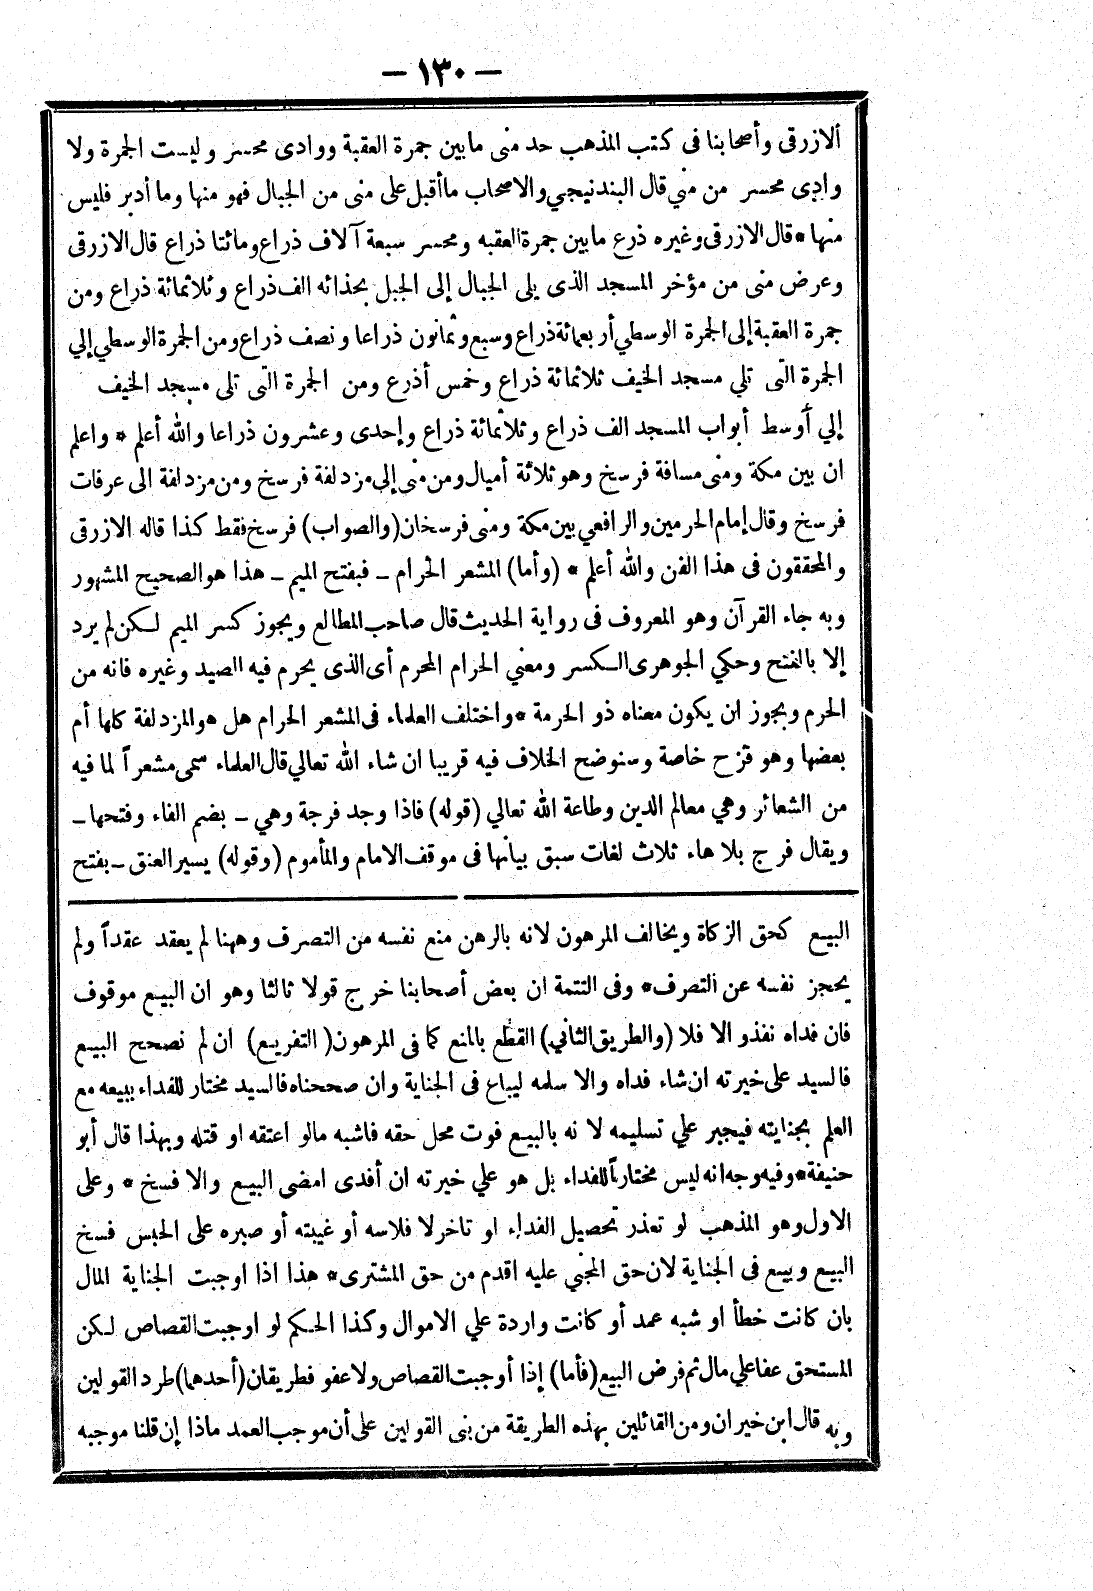 — ١٣٠ —
ألازرقى وأصحابنا فى كتب المذهب حد منى مابين جمرة العقبة ووادى محسر وليست الجمرة ولا
وادى محسر من منى قال البندنيجي والاصحاب ماأقبل على منى من الجبال فهو منها وما أدبر فليس
منها * قال الازرقى وغيره ذرع مابين جمرة العقبه ومحسر سبعة آلاف ذراع ومائتا ذراع قال الازرقى
وعرض منى من مؤخر المسجد الذى يلى الجبال إلى الجبل بحذائه الف ذراع وثلاثمائة ذراع ومن
جمرة العقبة إلى الجمرة الوسطي أربعمائة ذراع وسبع وثمانون ذراعا ونصف ذراع ومن الجمرة الوسطي إلي
الجمرة التى تلي مسجد الخيف ثلاثمائة ذراع وخمس أذرع ومن الجمرة التى تلى مسجد الخيف
إلي أوسط أبواب المسجد الف ذراع وثلاثمائة ذراع وإحدى وعشرون ذراعا والله أعلم * واعلم
ان بين مكة ومنى مسافة فرسخ وهو ثلاثة أميال ومن منى إلى مزدلفة فرسخ ومن مزدلفة الى عرفات
فرسخ وقال إمام الحرمين والرافعي بين مكة ومنى فرسخان (والصواب) فرسخ فقط كذا قاله الازرقى
والمحققون فى هذا الفن والله أعلم * (وأما) المشعر الحرام ـ فبفتح الميم ـ هذا هو الصحيح المشهور
وبه جاء القرآن وهو المعروف فى رواية الحديث قال صاحب المطالع ويجوز كسر الميم لكن لم يرد
إلا بالفتح وحكي الجوهرى الكسر ومعنى الحرام المحرم أى الذى يحرم فيه الصيد وغيره فانه من
الحرم ويجوز ان يكون معناه ذو الحرمة * واختلف العلماء فى المشعر الحرام هل هو المزدلفة كلها أم
بعضها وهو قزح خاصة وسنوضح الخلاف فيه قريبا ان شاء الله تعالي قال العلماء سمى مشعراً لما فيه
من الشعائر وهي معالم الدين وطاعة الله تعالي (قوله) فاذا وجد فرجة وهي ـ بضم الفاء وفتحها ـ
ويقال فرج بلا هاء ثلاث لغات سبق بيانها فى موقف الامام والمأموم (وقوله) يسير العنق ـ بفتح
البيع كحق الزكاة ويخالف المرهون لانه بالرهن منع نفسه من التصرف وههنا لم يعقد عقداً ولم
يحجز نفسه عن التصرف * وفى التتمة ان بعض أصحابنا خرج قولا ثالثا وهو ان البيع موقوف
فان فداه نفذ والا فلا (والطريق الثاني) القطع بالمنع كما فى المرهون (التفريع) ان لم نصحح البيع
فالسيد على خيرته ان شاء فداه والا سلمه ليباع فى الجناية وان صححناه فالسيد مختار للفداء ببيعه مع
العلم بجنايته فيجبر علي تسليمه لا نه بالبيع فوت محل حقه فاشبه مالو اعتقه او قتله وبهذا قال أبو
حنيفة * وفيه وجه انه ليس مختاراً للفداء بل هو علي خيرته ان أفدى امضى البيع والا فسخ * وعلى
الاول وهو المذهب لو تعذر تحصيل الفداء او تاخر لا فلاسه أو غيبته أو صبره على الحبس فسخ
البيع وبيع فى الجناية لان حق المجني عليه اقدم من حق المشترى * هذا اذا اوجبت الجناية المال
بان كانت خطأ او شبه عمد أو كانت واردة علي الاموال وكذا الحكم لو اوجبت القصاص لكن
المستحق عفا علي مال ثم فرض البيع (فأما) إذا أوجبت القصاص ولا عفو فطريقان (أحدهما) طرد القولين
وبه قال ابن خيران ومن القائلين بهذه الطريقة من بنى القولين على أن موجب العمد ماذا إن قلنا موجبه